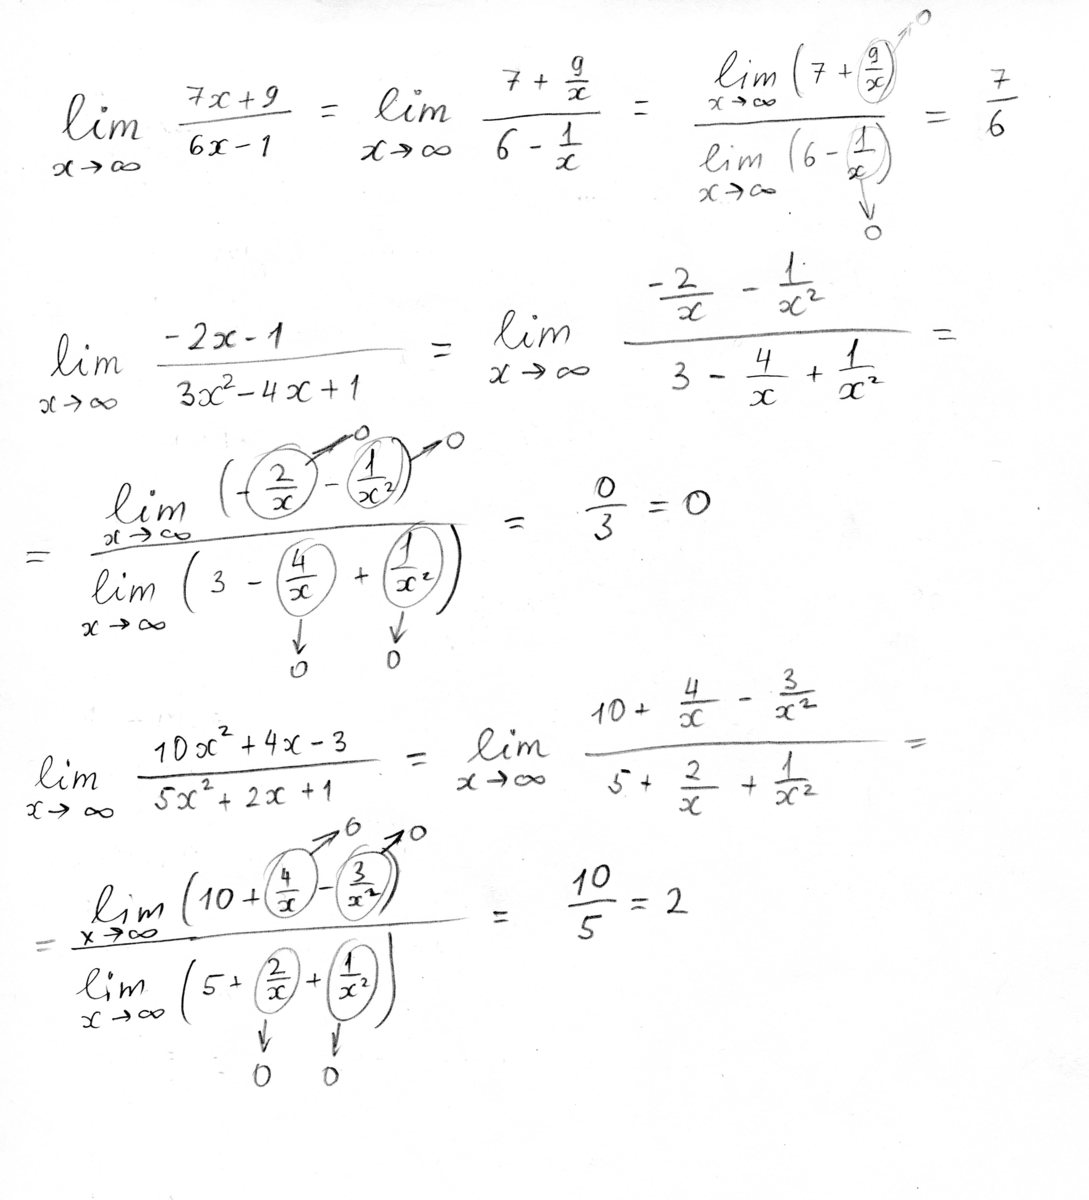 lim x→∞ (7x+9)/(6x-1) = lim x→∞ (7 + 9/x)/(6 - 1/x) = (lim x→∞ (7 + 9/x→0))/(lim x→∞ (6 - 1/x→0)) = 7/6
lim x→∞ (-2x-1)/(3x²-4x+1) = lim x→∞ (-2/x - 1/x²)/(3 - 4/x + 1/x²) =
= (lim x→∞ (-2/x→0 - 1/x²→0))/(lim x→∞ (3 - 4/x→0 + 1/x²→0)) = 0/3 = 0
lim x→∞ (10x²+4x-3)/(5x²+2x+1) = lim x→∞ (10 + 4/x - 3/x²)/(5 + 2/x + 1/x²) =
= (lim x→∞ (10 + 4/x→0 - 3/x²→0))/(lim x→∞ (5 + 2/x→0 + 1/x²→0)) = 10/5 = 2